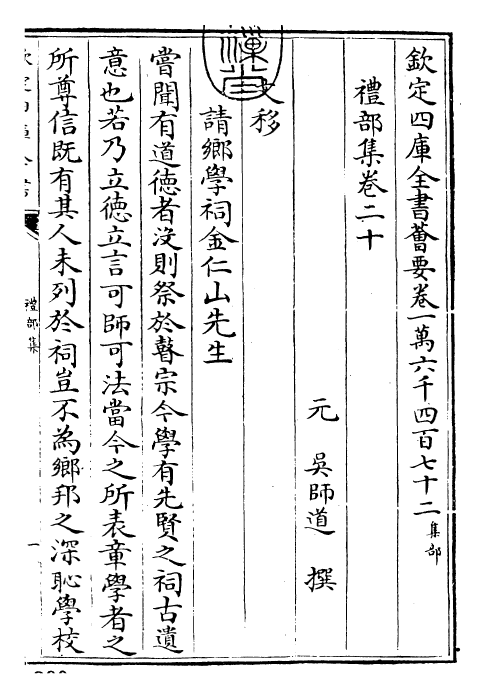 欽定四庫全書薈要卷一萬六千四百七十二集部
禮部集卷二十
元 吳師道 撰
文移
請鄉學祠金仁山先生
嘗聞有道德者沒則祭於瞽宗今學有先賢之祠古遺
意也若乃立德立言可師可法當今之所表章學者之
所尊信既有其人未列於祠豈不為鄉邦之深恥學校
禮部集
一